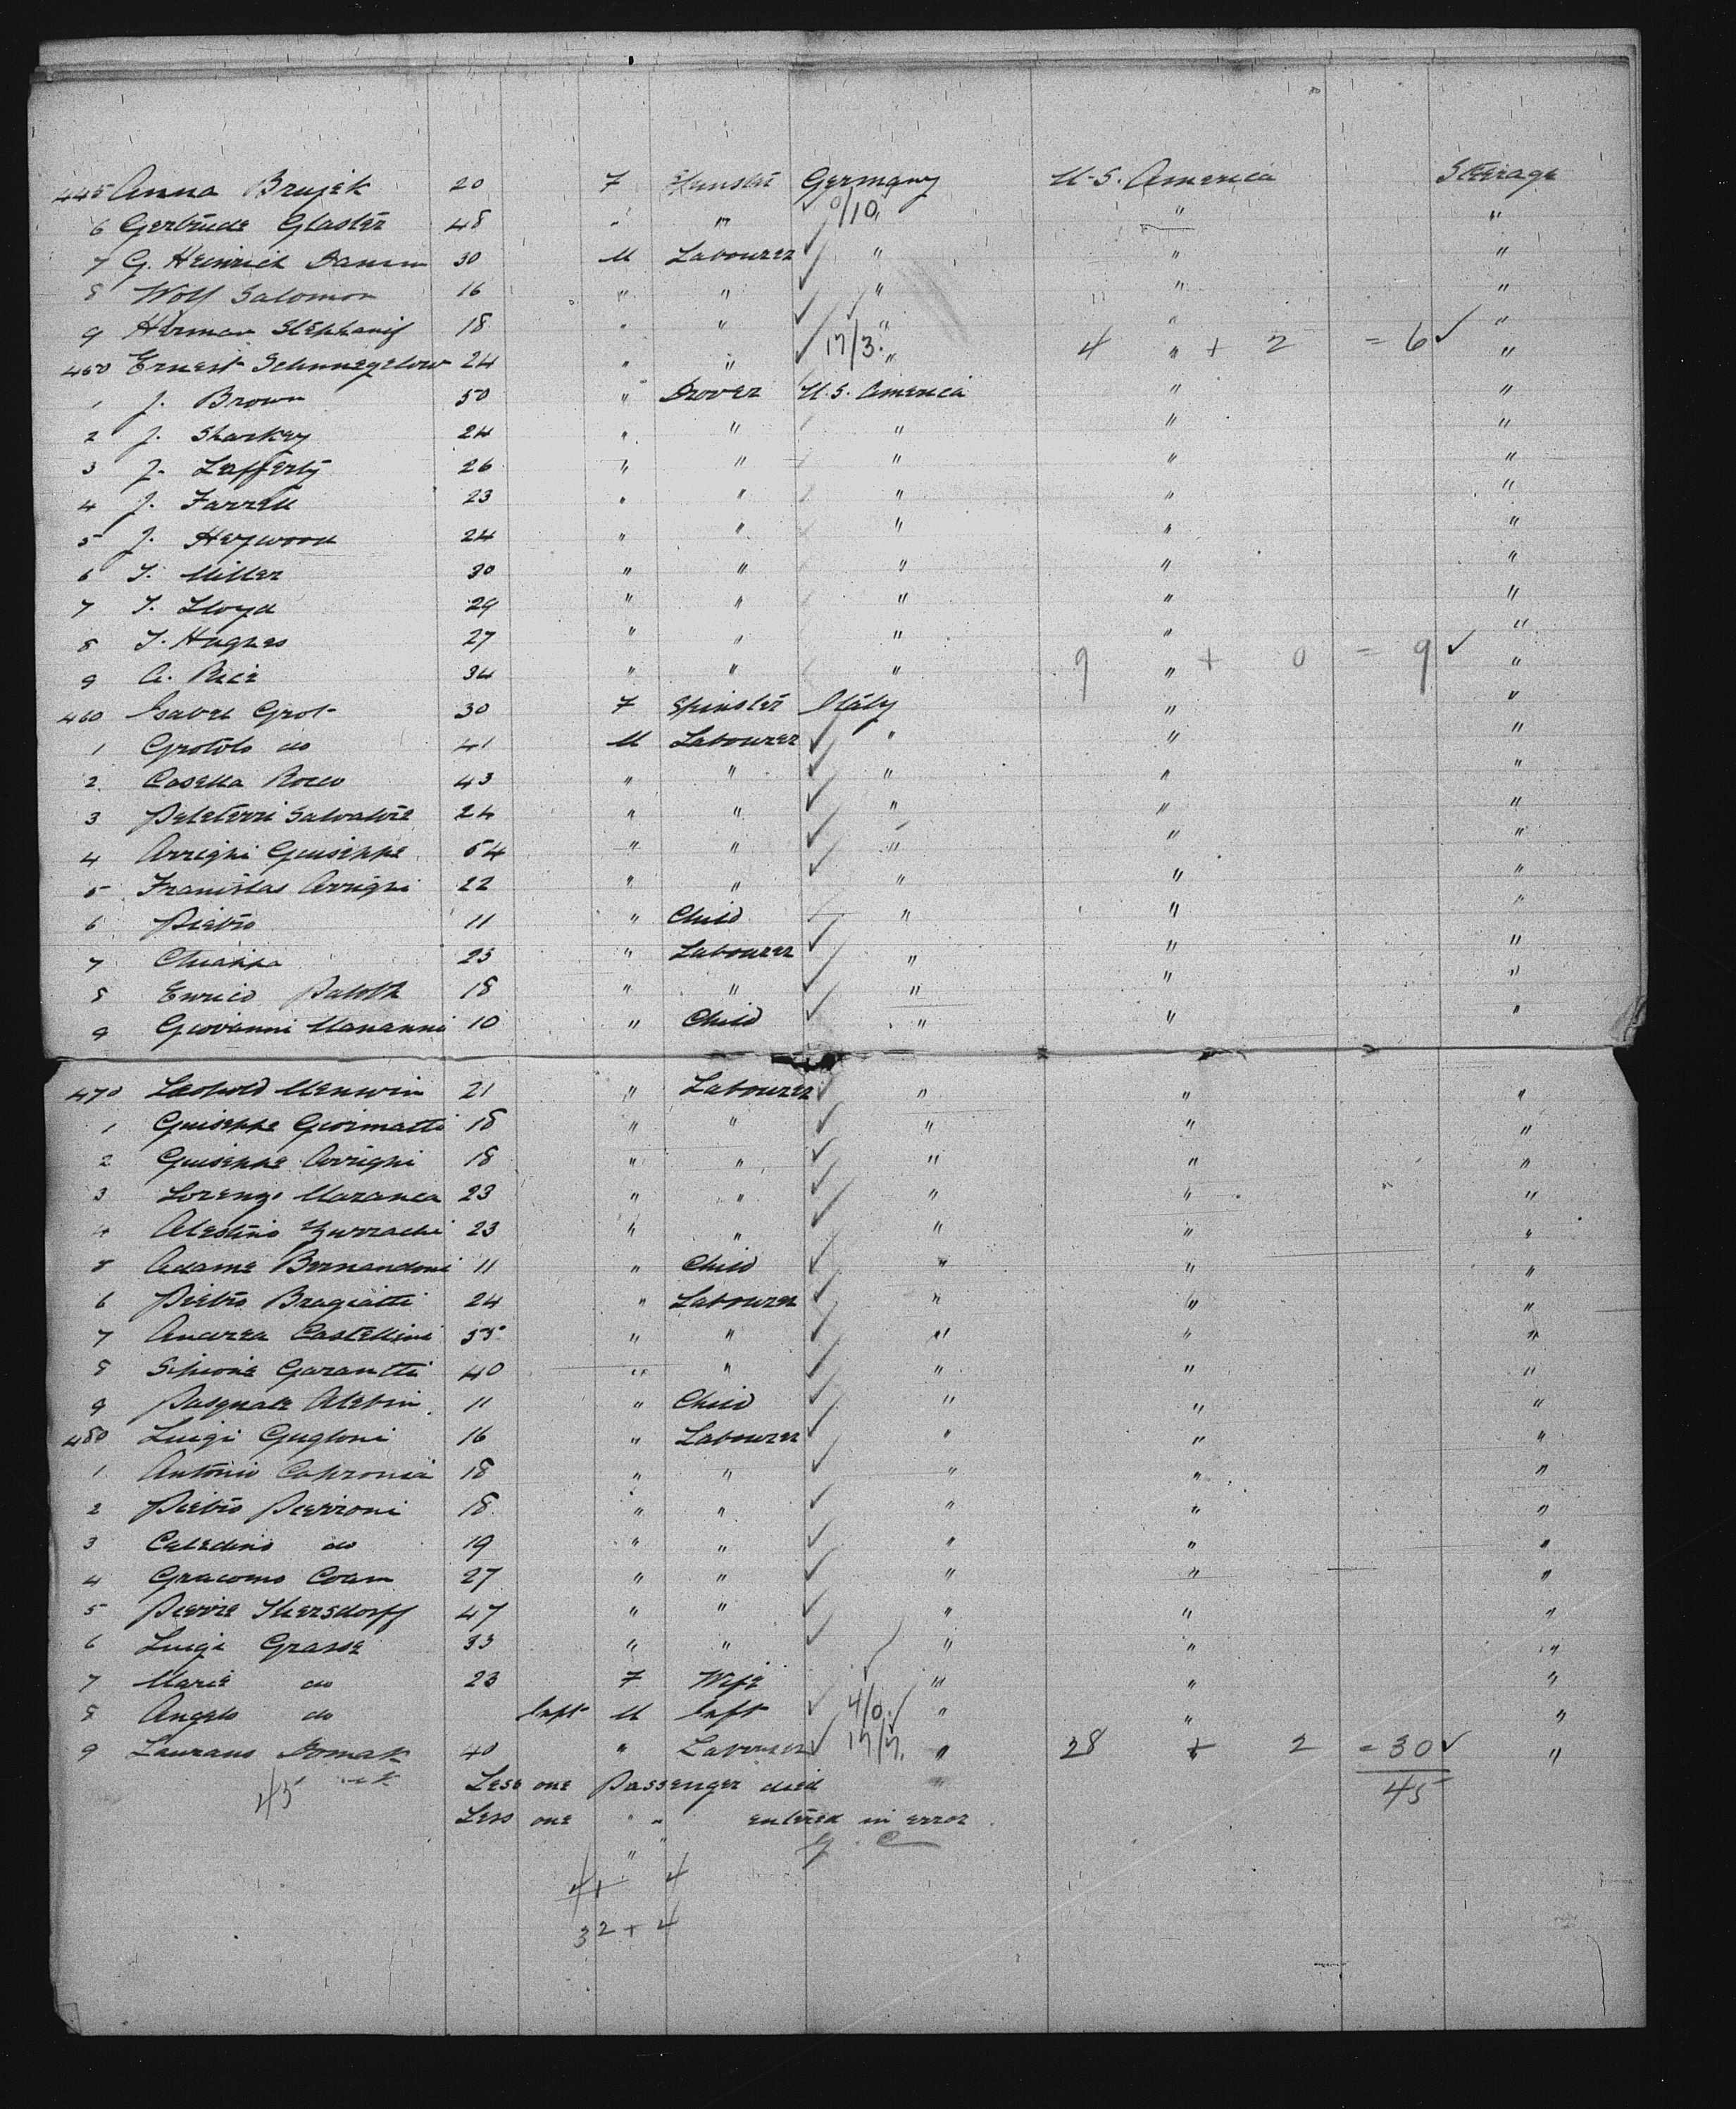 445 Anna Brujek 20 F Spinster Germany U.S. America Steerage
6 Gertrude Glaster 48 " " 0/10 " " "
7 G. Heinrich Damm 30 M Labourer " " "
8 Wolf Salomon 16 " " " " "
9 Herman 18 " " " " "
450 Ernest 24 " " 17/3 " 4 " + 2 = 6 "
1 J. Brown 50 " Drover U.S. America " "
2 J. Sharkey 24 " " " " "
3 J. Lafferty 26 " " " " "
4 J. Farrell 23 " " " " "
5 J. Heywood 24 " " " " "
6 T. Miller 30 " " " " "
7 T. Lloyd 29 " " " " "
8 T. Hughes 27 " " " " "
9 A. Rice 34 " " " 9 " + 0 = 9 "
460 Isabel Grot 30 F Spinster Italy " "
1 Grotolo do 41 M Labourer " " "
2 Casella Rocco 43 " " " " "
3 Salvatore 24 " " " " "
4 Arrighi Guiseppe 54 " " " " "
5 Franistas Arrighi 22 " " " " "
6 Pietro 11 " Child " " "
7 Chiappa 23 " Labourer " " "
8 Enrico 18 " " " " "
9 Giovanni 10 " Child " " "
470 Leopold 21 " Labourer " " "
1 Guiseppe 18 " " " " "
2 Guiseppe Arrighi 18 " " " " "
3 Lorenzo Maranca 23 " " " " "
4 23 " " " " "
5 Adame Bernandoni 11 " Child " " "
6 Pietro Bragiatti 24 " Labourer " " "
7 Andrea Castellini 55 " " " " "
8 Sipione Garantti 40 " " " " "
9 Pasquale 11 " Child " " "
480 Luigi Gugloni 16 " Labourer " " "
1 Antonio Capronia 18 " " " " "
2 Pietro Pierroni 18 " " " " "
3 Celedino do 19 " " " " "
4 Giacomo Coan 27 " " " " "
5 Pierre 47 " " " " "
6 Luigi Grasse 33 " " " " "
7 Marie do 23 F Wife " " "
8 Angelo do Inft M Inft 4/0 " " "
9 Laurans 40 " Labourer 17/7 " 28 + 2 = 30 "
45 Less one Passenger died " 45
Less one " " entered in error
"
41 4
32 + 4